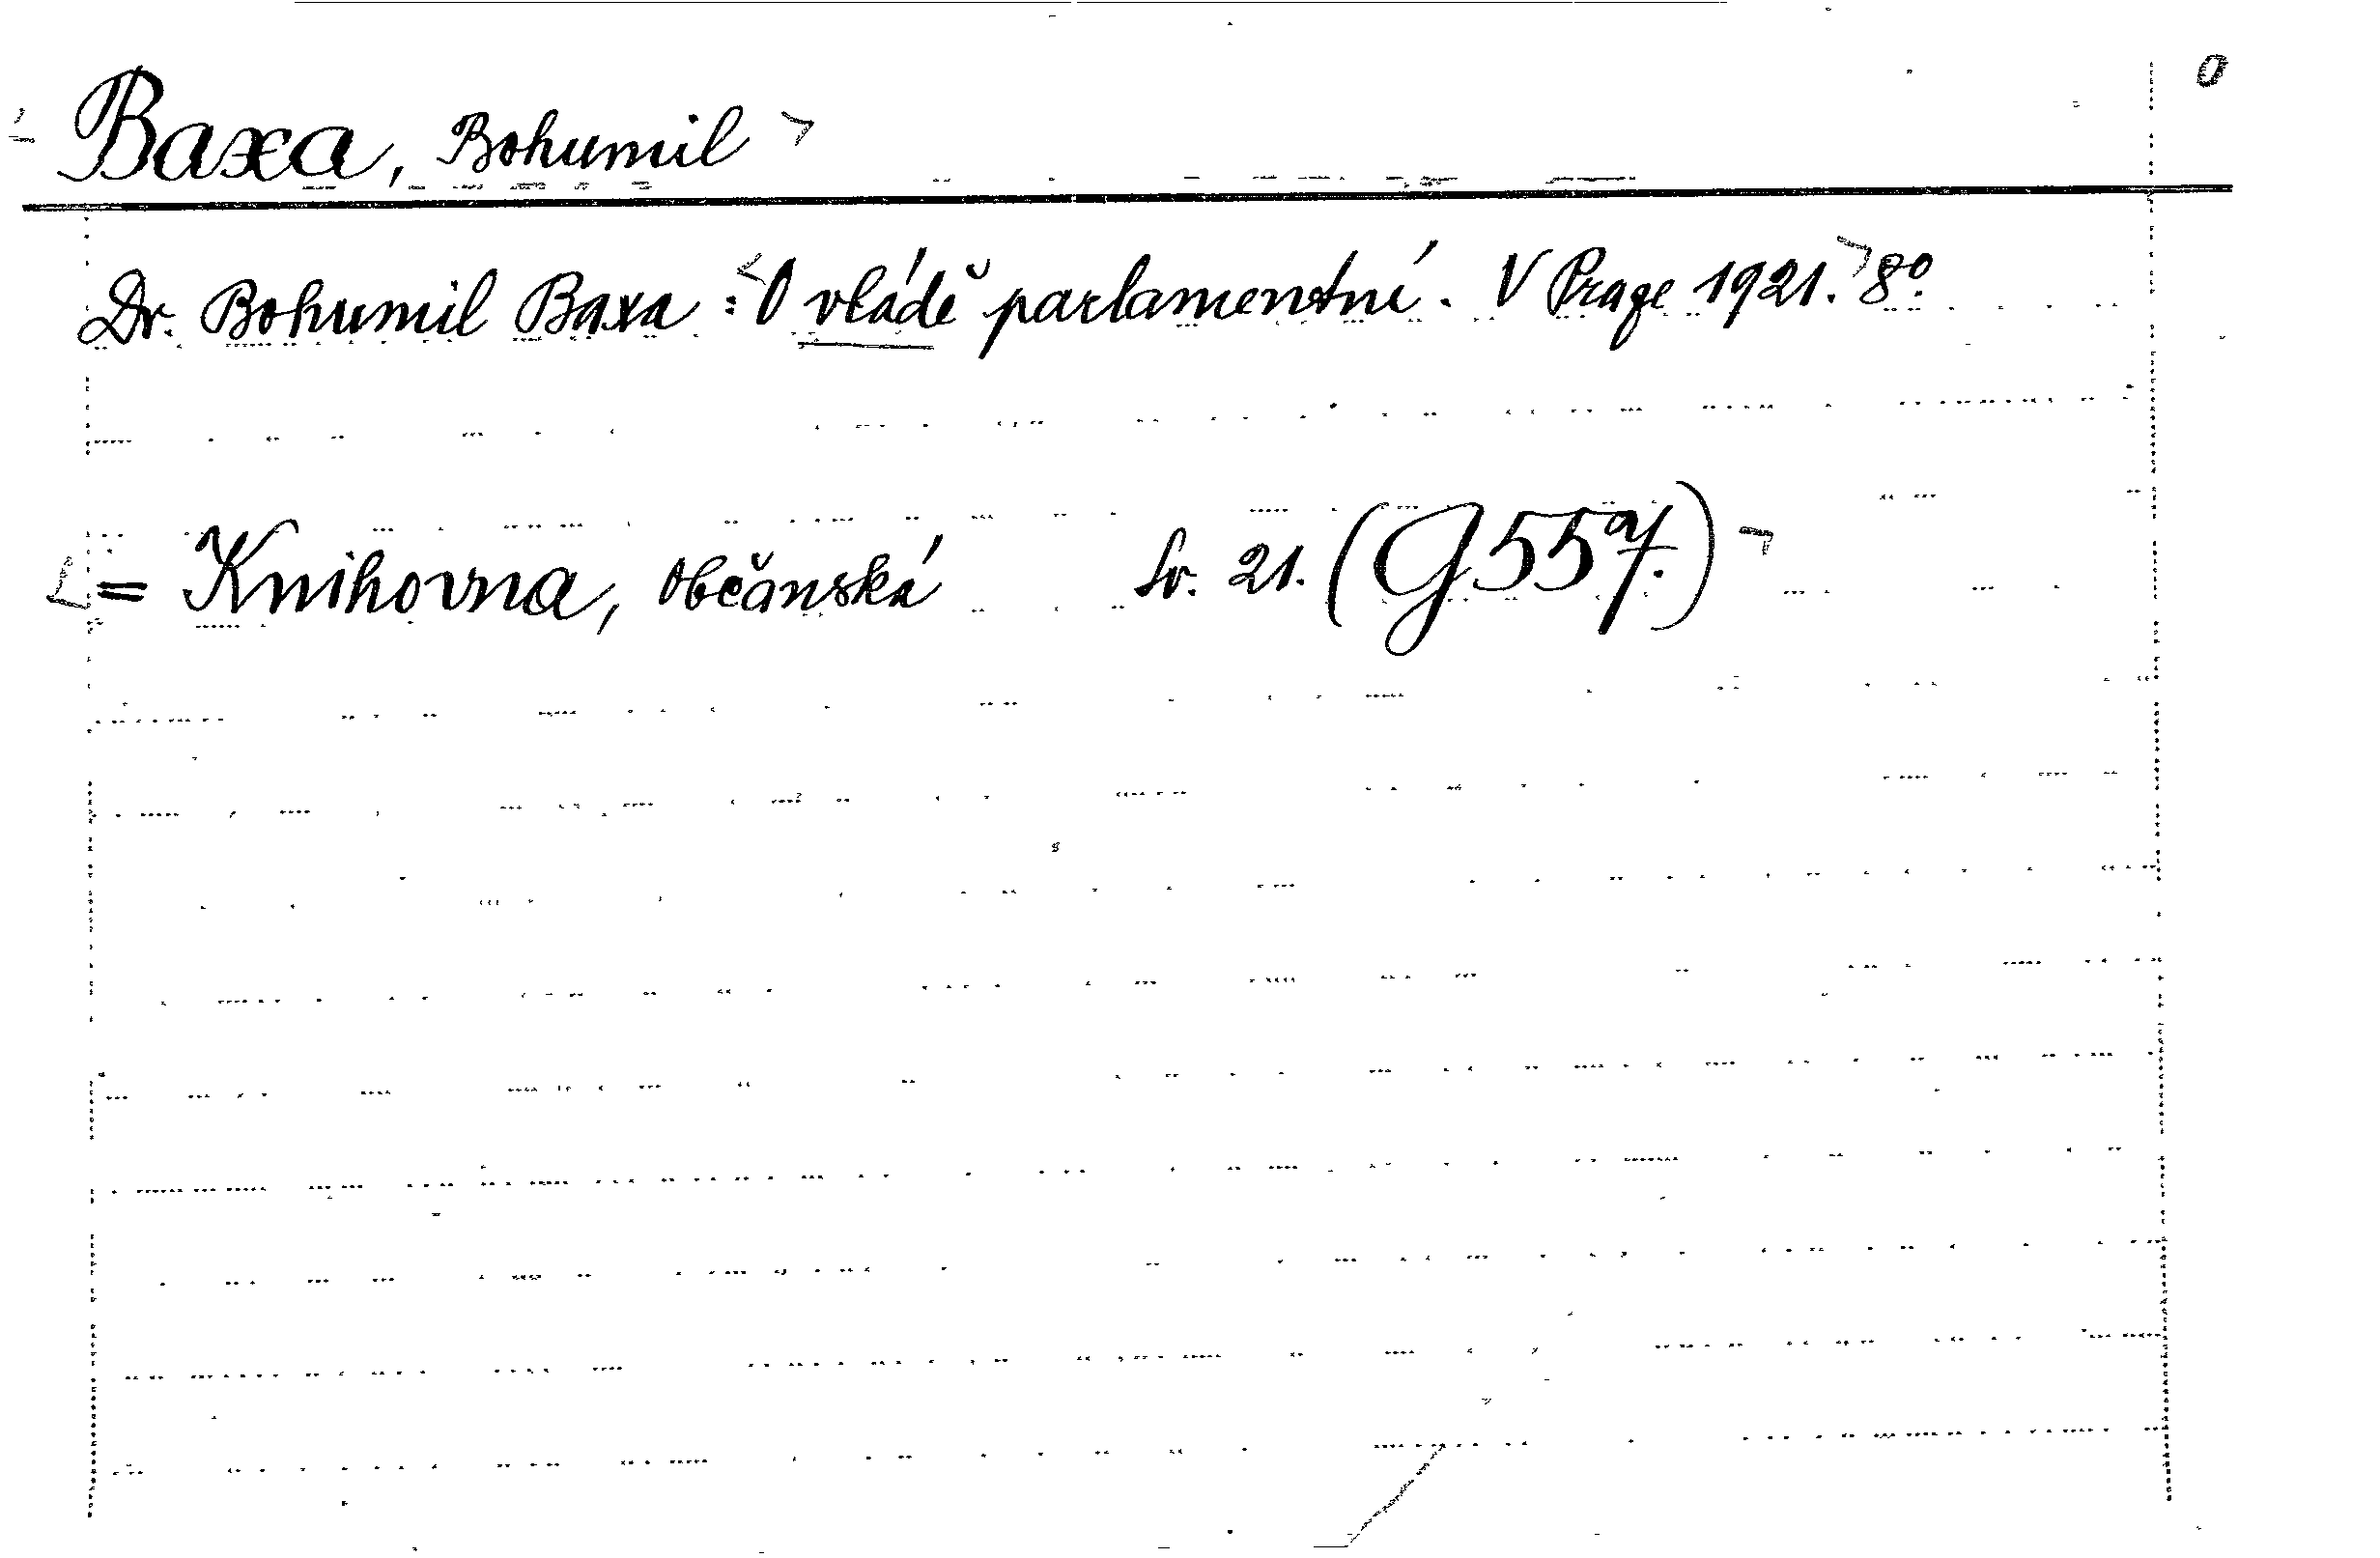 Baxa, Bohumil
Dr. Bohumil Baxa: O vládě parlamentní. V Praze 1921. 8°.
= Knihovna, Občanská Sv. 21. (G 55